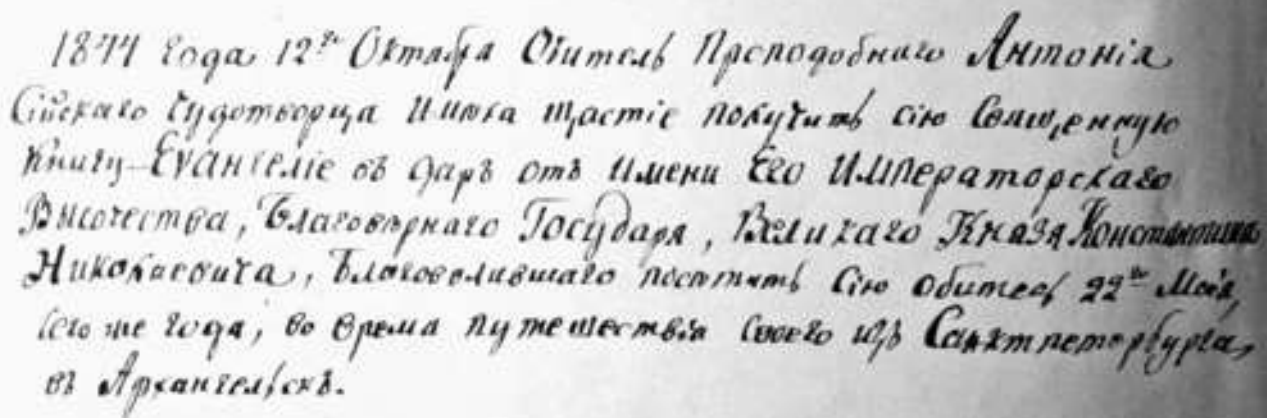 1844 года 12го Октября Обитель Преподобнаго Антонія
Сійскаго Чудотворца имѣла щастіе получить сію Священную
Книгу Еѵангеліе въ даръ отъ имени Его Императорскаго
Высочества, Благовѣрнаго Государя, Великаго Князя Константина
Николаевича, Благоволившаго посѣтить сію обитель 22го Мая,
сего же года, во время путешествія своего изъ Санктпетербурга,
въ Архангельскъ.